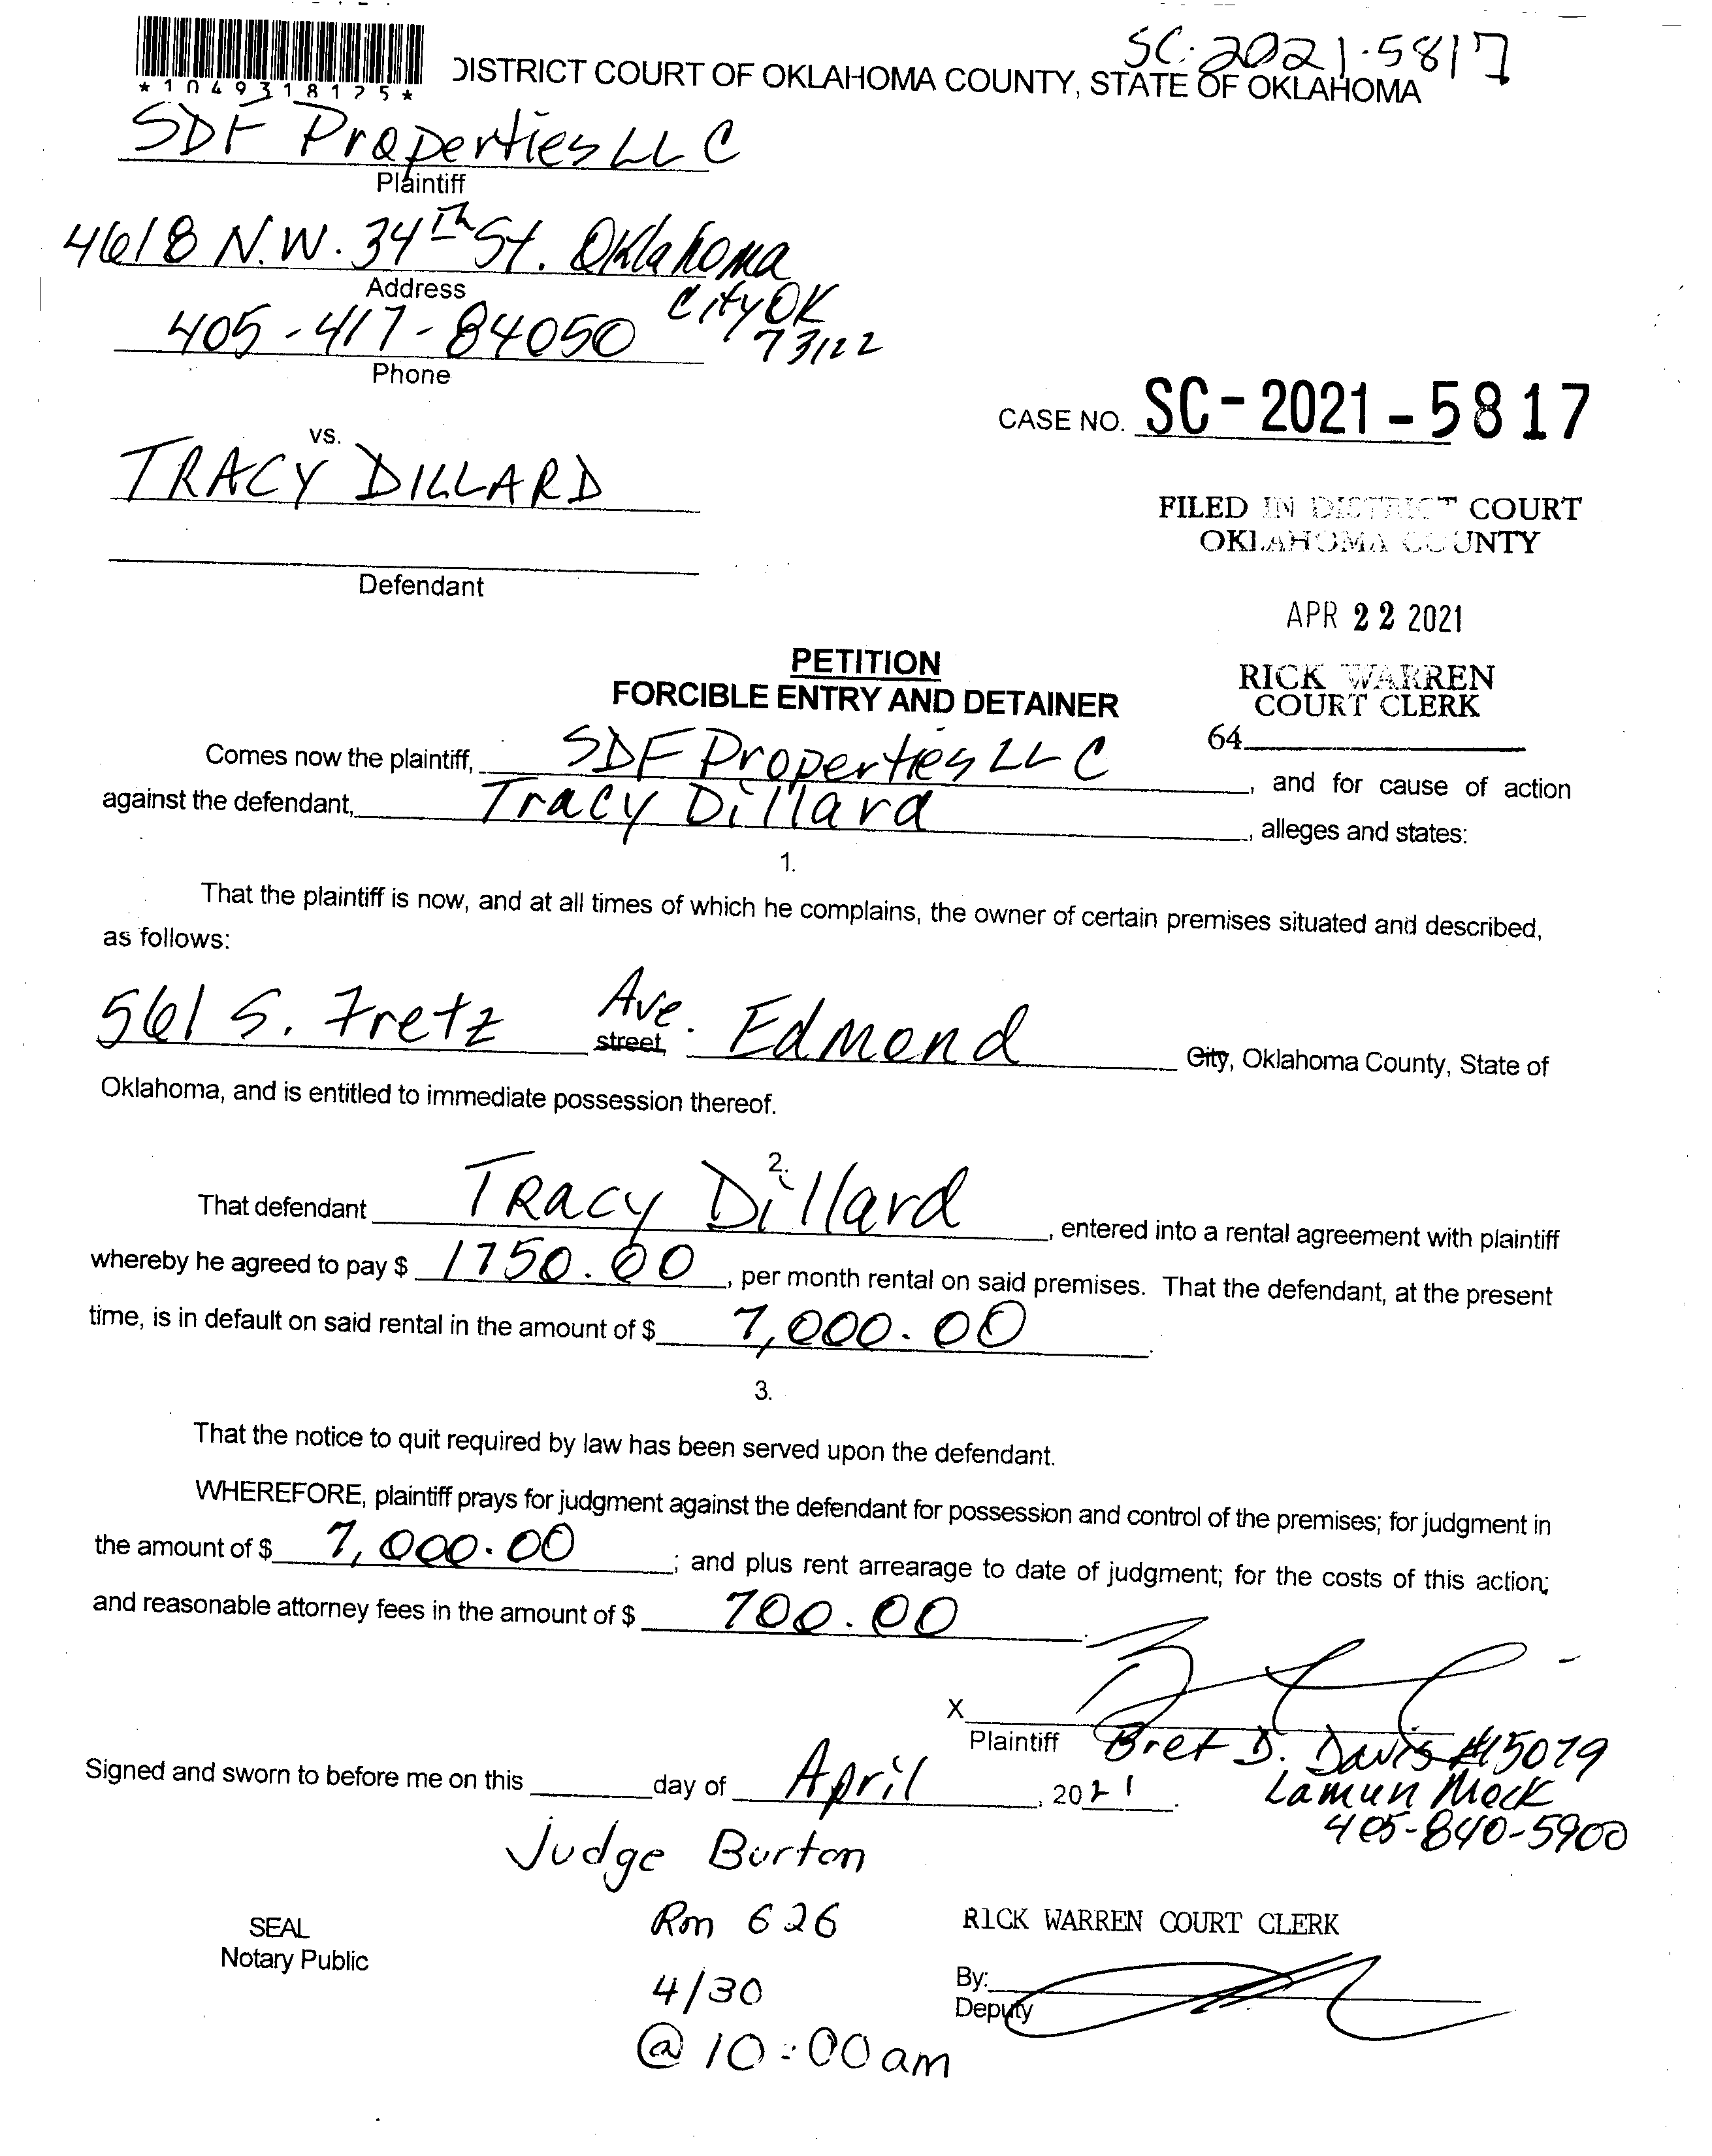 SC-2021-5817
*1049318125*
DISTRICT COURT OF OKLAHOMA COUNTY, STATE OF OKLAHOMA
SDF Properties LLC
Plaintiff
4618 N.W. 34th St. Oklahoma
City OK
73122
Address
405-417-84050
Phone
CASE NO. SC-2021-5817
vs.
TRACY DILLARD
FILED IN DISTRICT COURT
OKLAHOMA COUNTY
Defendant
APR 22 2021
PETITION
FORCIBLE ENTRY AND DETAINER
RICK WARREN
COURT CLERK
64
Comes now the plaintiff, SDF Properties LLC, and for cause of action
against the defendant, Tracy Dillard, alleges and states:
1.
That the plaintiff is now, and at all times of which he complains, the owner of certain premises situated and described,
as follows:
561 S. Fretz Ave. street, Edmond City, Oklahoma County, State of
Oklahoma, and is entitled to immediate possession thereof.
2.
That defendant Tracy Dillard, entered into a rental agreement with plaintiff
whereby he agreed to pay $ 1750.00, per month rental on said premises. That the defendant, at the present
time, is in default on said rental in the amount of $ 7,000.00.
3.
That the notice to quit required by law has been served upon the defendant.
WHEREFORE, plaintiff prays for judgment against the defendant for possession and control of the premises; for judgment in
the amount of $ 7,000.00; and plus rent arrearage to date of judgment; for the costs of this action;
and reasonable attorney fees in the amount of $ 700.00.
X
Plaintiff Bret D. Davis #15079
Lamun Mock
405-840-5900
Signed and sworn to before me on this day of April, 2021.
Judge Burton
Rm 626
4/30
@ 10:00am
SEAL
Notary Public
RICK WARREN COURT CLERK
By:
Deputy